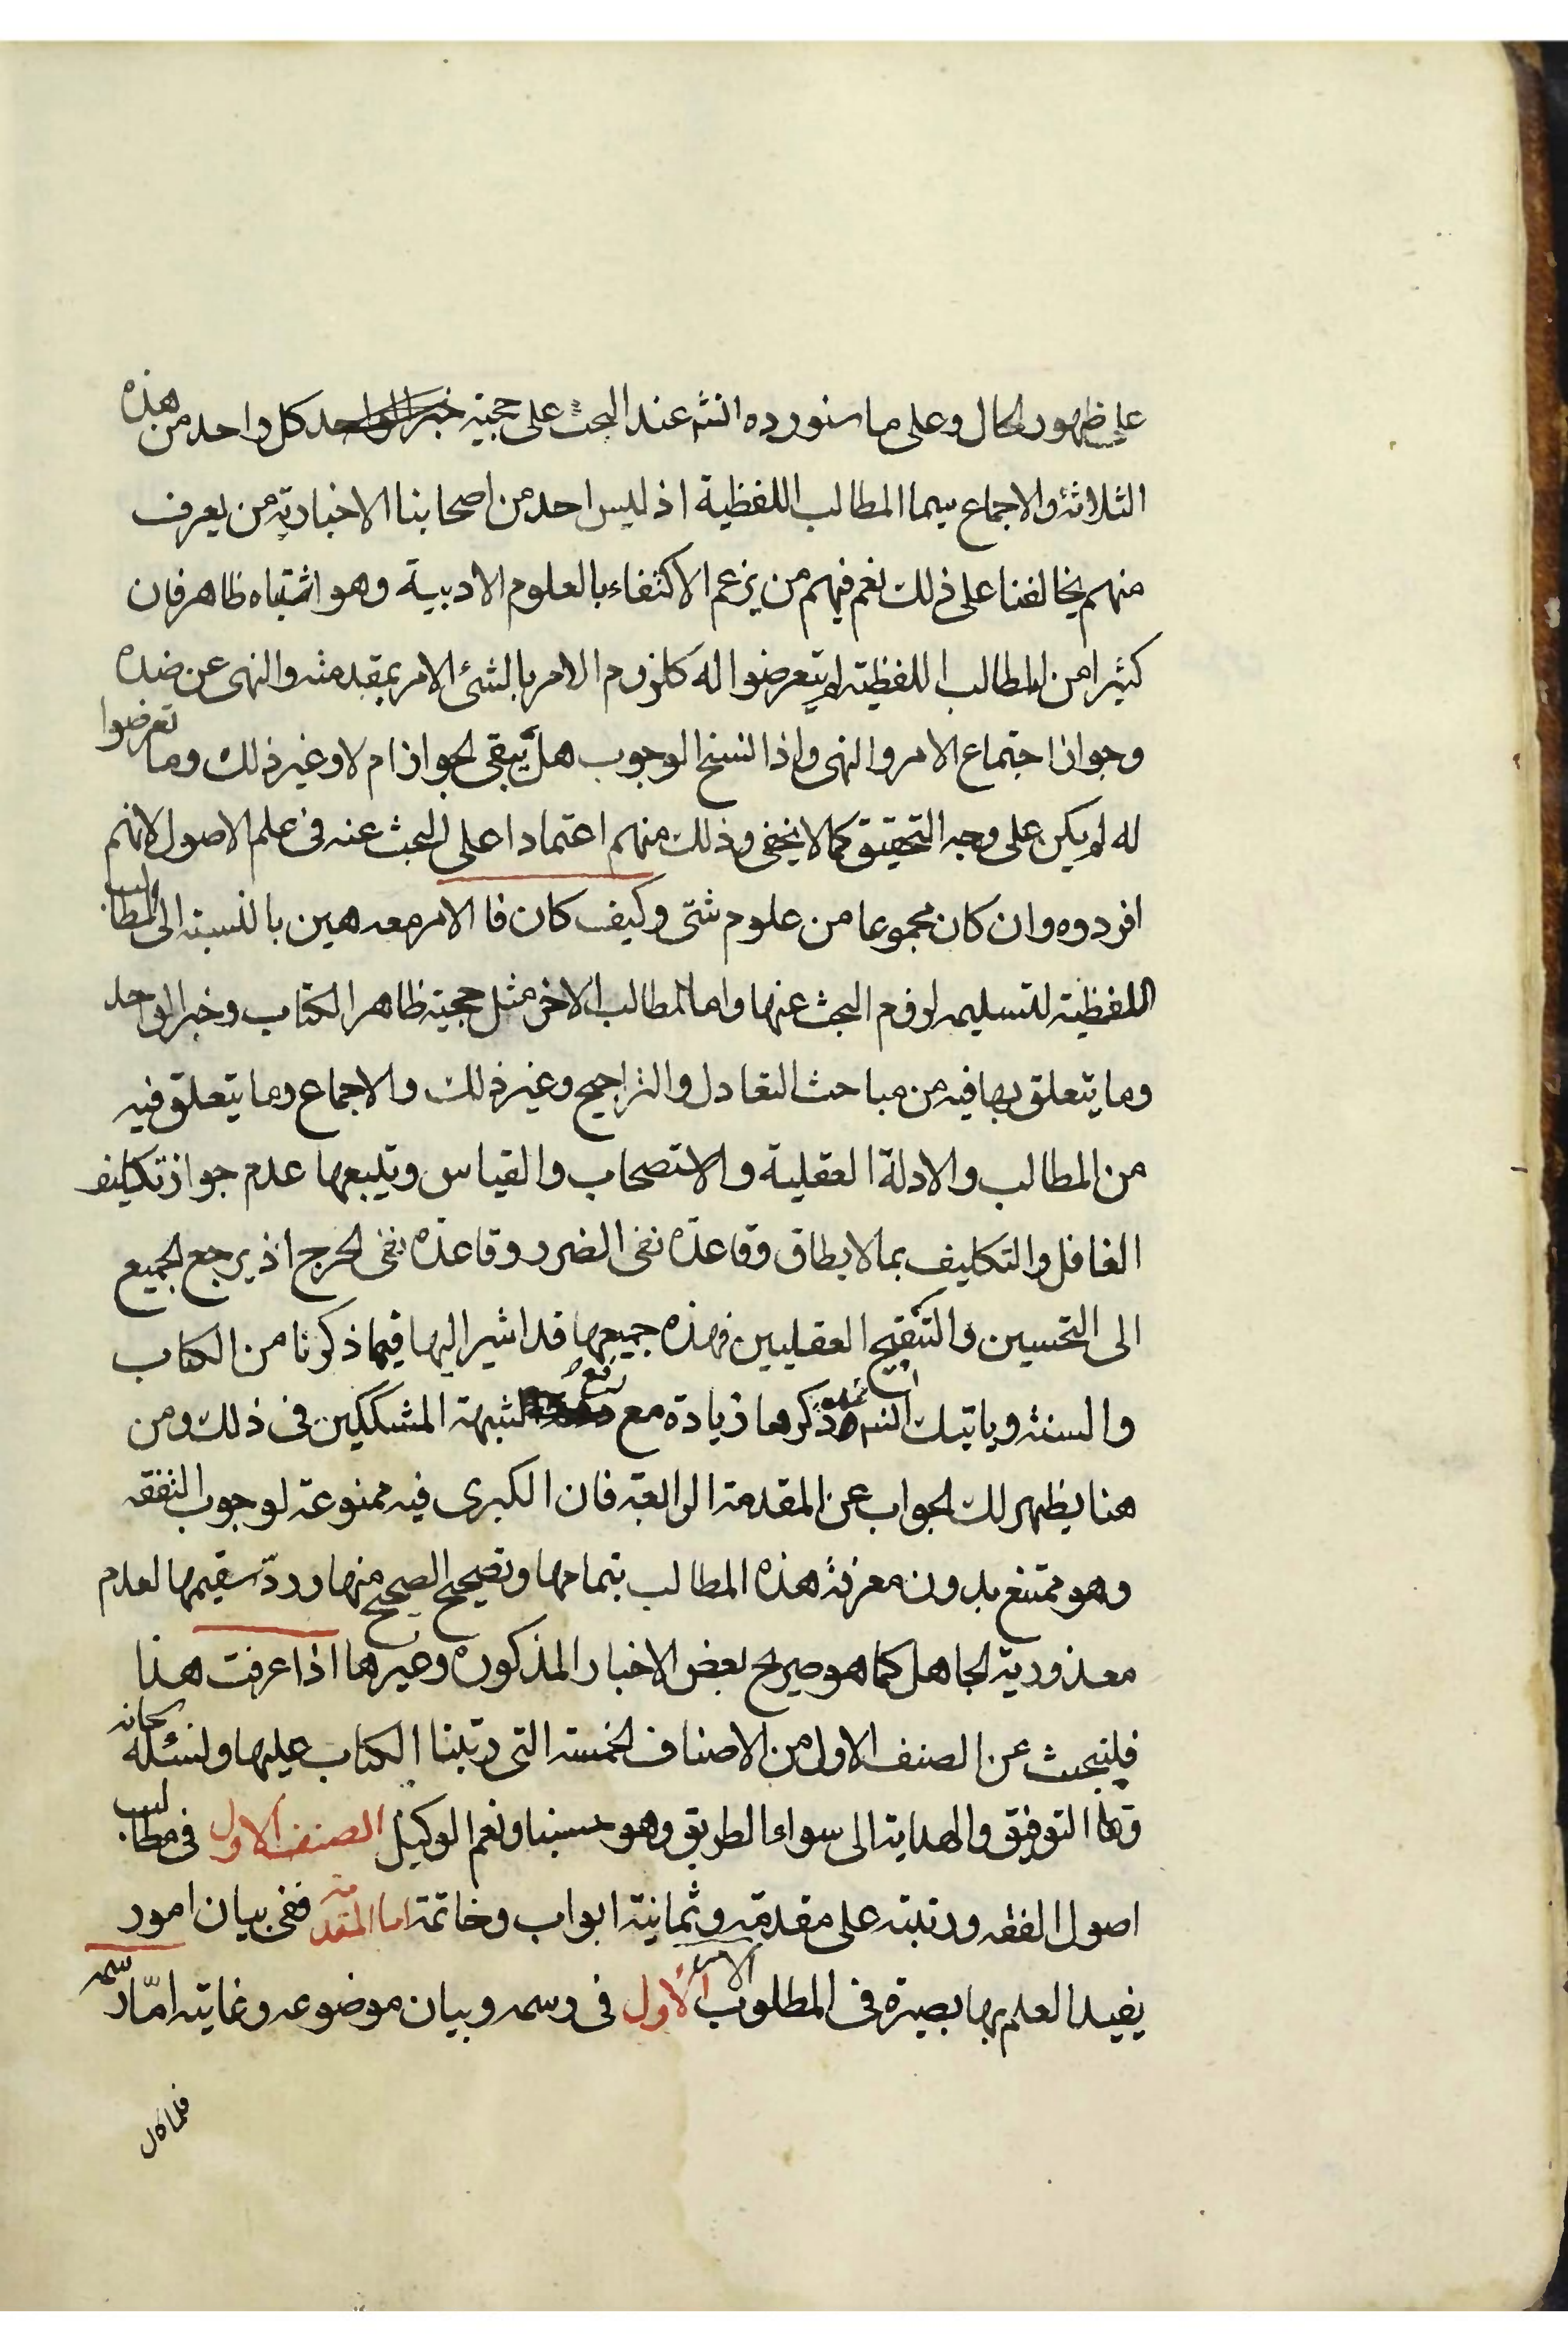 على ظهور الحال وعلى ما سنورده انشه عند البحث على حجية خبر الواحد كل واحد من هذه
الثلاثة والاجماع سيما المطالب اللفظية اذ ليس احد من اصحابنا الاخبارية من يعرف
منهم يخالفنا على ذلك نعم فيهم من يزعم الاكتفاء بالعلوم الادبية وهو اشتباه ظاهر فان
كثيرا من المطالب اللفظية لم يتعرضوا له كلزوم الامر بالشئ الامر بمقدمته والنهى عن ضده
وجواز اجتماع الامر والنهى واذا نسخ الوجوب هل يبقى الجواز ام لا وغير ذلك وما تعرضوا
له لم يكن على وجه التحقيق كما لا يخفى وذلك منهم اعتمادا على البحث عنه فى علم الاصول لانهم
افردوه وان كان مجموعا من علوم شتى وكيف كان فا الامر معه هين بالنسبة الى المطالب
اللفظية لتسليمه لزوم البحث عنها واما المطالب الاخر مثل حجية ظاهر الكتاب وخبر الواحد
وما يتعلق بها فيه من مباحث التعادل والتراجيح وغير ذلك والاجماع وما يتعلق فيه
من المطالب والادلة العقلية والاستصحاب والقياس ويتبعها عدم جواز تكليف
الغافل والتكليف بما لا يطاق وقاعدة نفى الضرر وقاعدة نفى الحرج اذ يرجع الجميع
الى التحسين والتقبيح العقليين فهذه جميعها قد اشير اليها فيما ذكرنا من الكتاب
والسنة وياتيك انشه ذكرها زيادة مع رفع لشبهة المشككين فى ذلك ومن
هنا يظهر لك الجواب عن المقدمة الرابعة فان الكبرى فيه ممنوعة لوجوب التفقه
وهو ممتنع بدون معرفة هذه المطالب بتمامها وتصحيح الصحيح منها ورد سقيمها لعدم
معذورية الجاهل كما هو صريح بعض الاخبار المذكورة وغيرها اذا عرفت هذا
فلنبحث عن الصنف الاول من الاصناف الخمسة التى رتبنا الكتاب عليها ولنسئله سبحانه
وتعا التوفيق والهداية الى سواء الطريق وهو حسبنا ونعم الوكيل الصنف الاول فى مطالب
اصول الفقه ورتبته على مقدمة وثمانية ابواب وخاتمة اما المقدمة ففى بيان امور
يفيد العلم بها بصيرة فى المطلوب الامر الاول فى رسمه وبيان موضوعه وغايته امّا رسمه